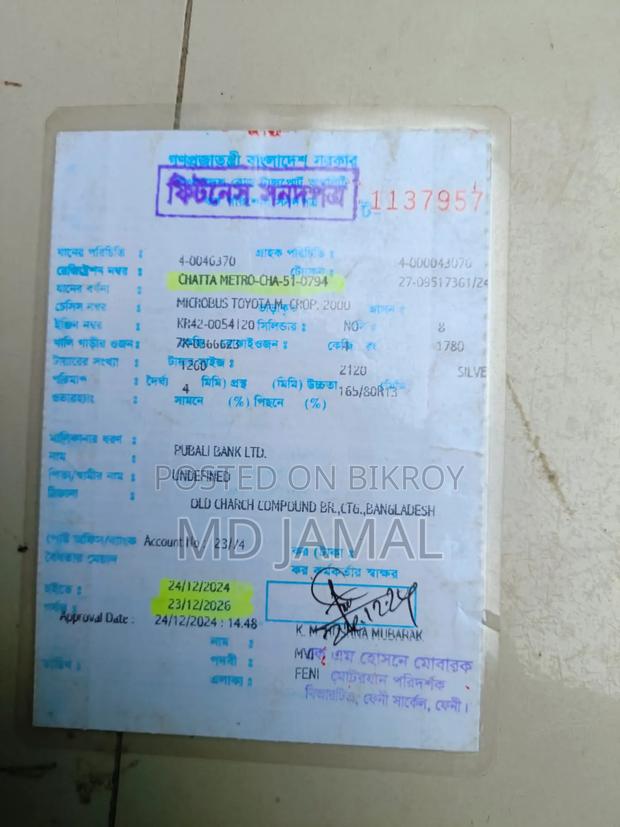 গণপ্রজাতন্ত্রী বাংলাদেশ সরকার
ফিটনেস সনদপত্র
1137957
যানের পরিচিতি : 4-0046370 গ্রাহক পরিচিতি : 4-000043076
রেজিষ্ট্রেশন নম্বর : CHATTA METRO-CHA-51-0794 27-09517361/24
যানের বর্ণনা : MICROBUS TOYOTA M. CROP. 2000
চেসিস নম্বর : KR42-0054120 সিলিন্ডার : NO 8
ইঞ্জিন নম্বর : 7K-0366623
খালি গাড়ীর ওজন: 1260 1780
টায়ারের সংখ্যা : 4 টায়ার সাইজ : 2120 SILVE
পরিমাপ : দৈর্ঘ্য মিমি) প্রস্থ (মিমি) উচ্চতা 165/80R13
ওভারহ্যাং সামনে (%) পিছনে (%)
মালিকানার ধরণ :
নাম : PUBALI BANK LTD.
পিতা/স্বামীর নাম : UNDEFINED
ঠিকানা : OLD CHARCH COMPOUND BR.,CTG.,BANGLADESH
POSTED ON BIKROY
MD JAMAL
Account No
কর কর্মকর্তার স্বাক্ষর
হইতে : 24/12/2024
23/12/2026
Approval Date : 24/12/2024 : 14.48
MUBARAK
নাম :
পদবী : MVI
এলাকা : FENI
কে এম হোসনে মোবারক
মোটরযান পরিদর্শক
বিআরটিএ, ফেনী সার্কেল, ফেনী।